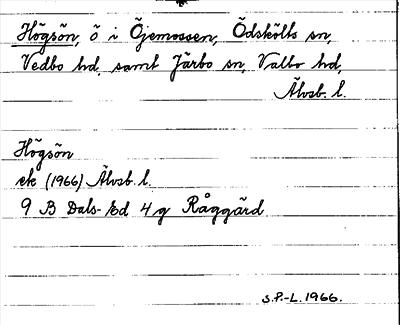 Högsön, ö i Öjemossen, Ödskölts sn,
Vedbo hd, samt Järbo sn, Valbo hd,
Älvsb. l.
Högsön
ek (1966) Älvsb. l.
9 B Dals-Ed 4 g Råggärd
S.P.-L. 1966.